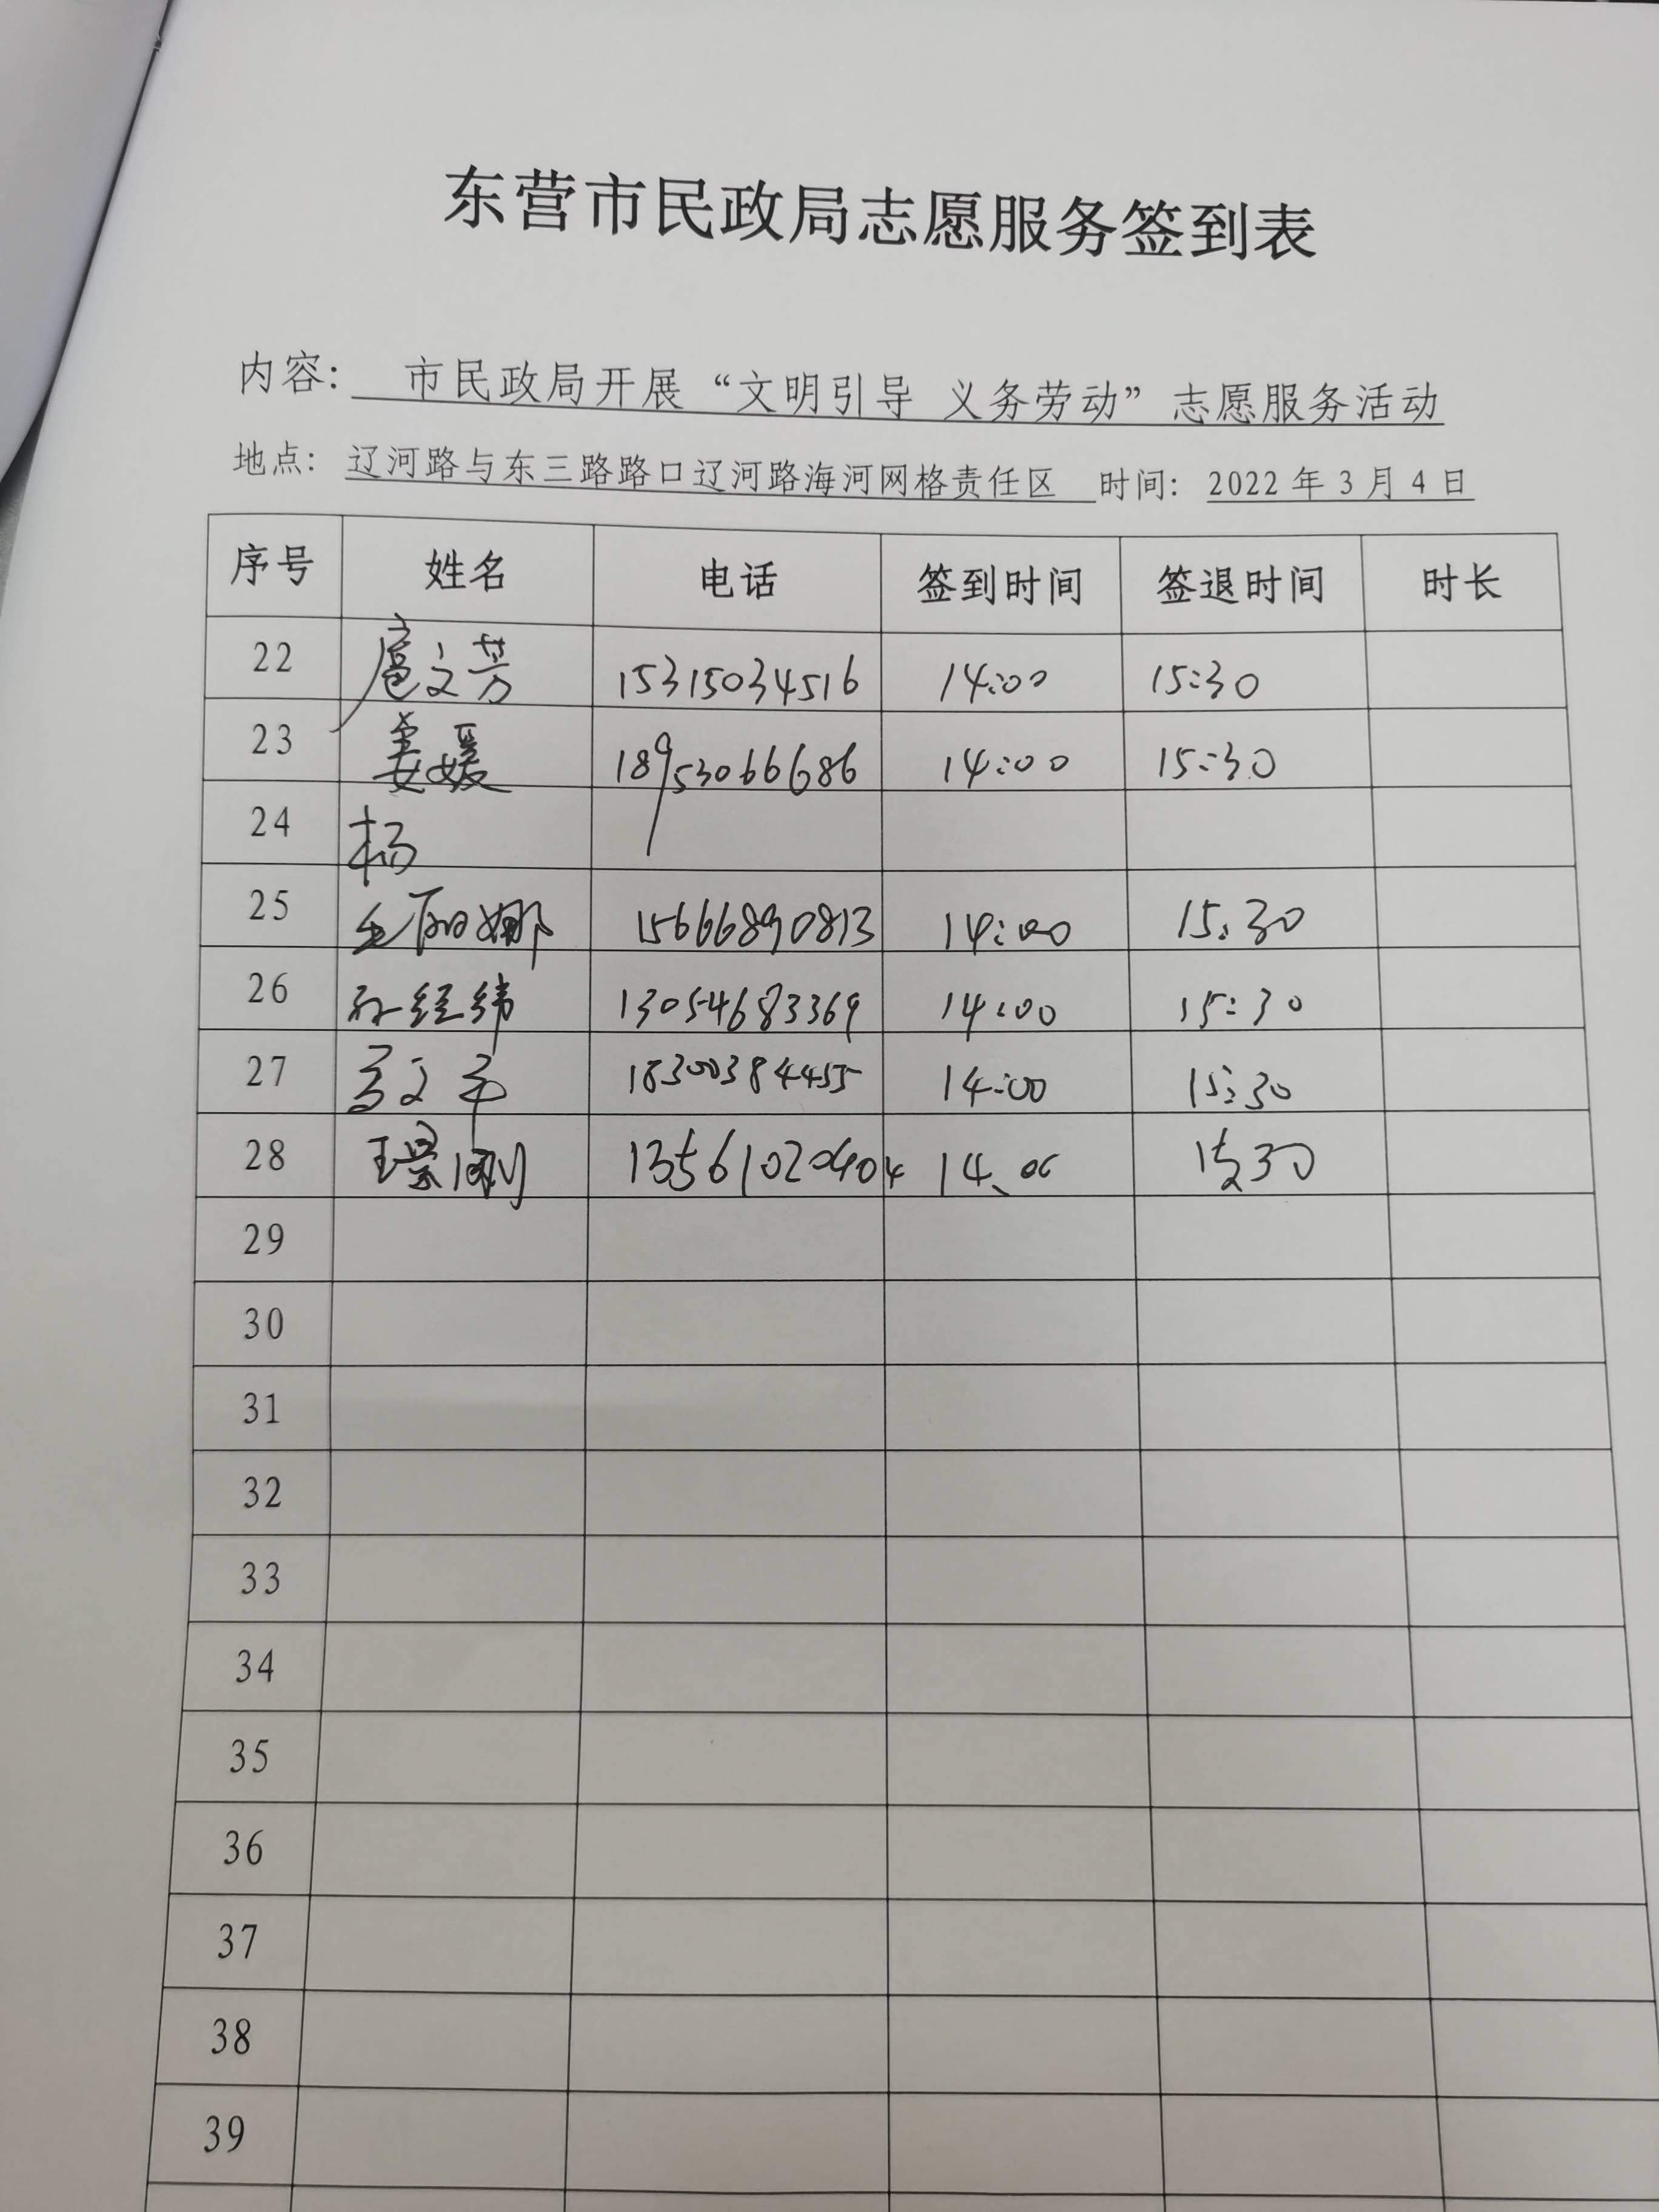 东营市民政局志愿服务签到表
内容: 市民政局开展“文明引导 义务劳动”志愿服务活动
地点: 辽河路与东三路路口辽河路海河网格责任区 时间: 2022年3月4日
序号 姓名 电话 签到时间 签退时间 时长
22 扈文芳 15315034516 14:00 15:30
23 姜媛 18953066686 14:00 15:30
24 杨
25 15666890813 14:00 15:30
26 孙经纬 13054683369 14:00 15:30
27 18300384455 14:00 15:30
28 14:00 15:30
29
30
31
32
33
34
35
36
37
38
39